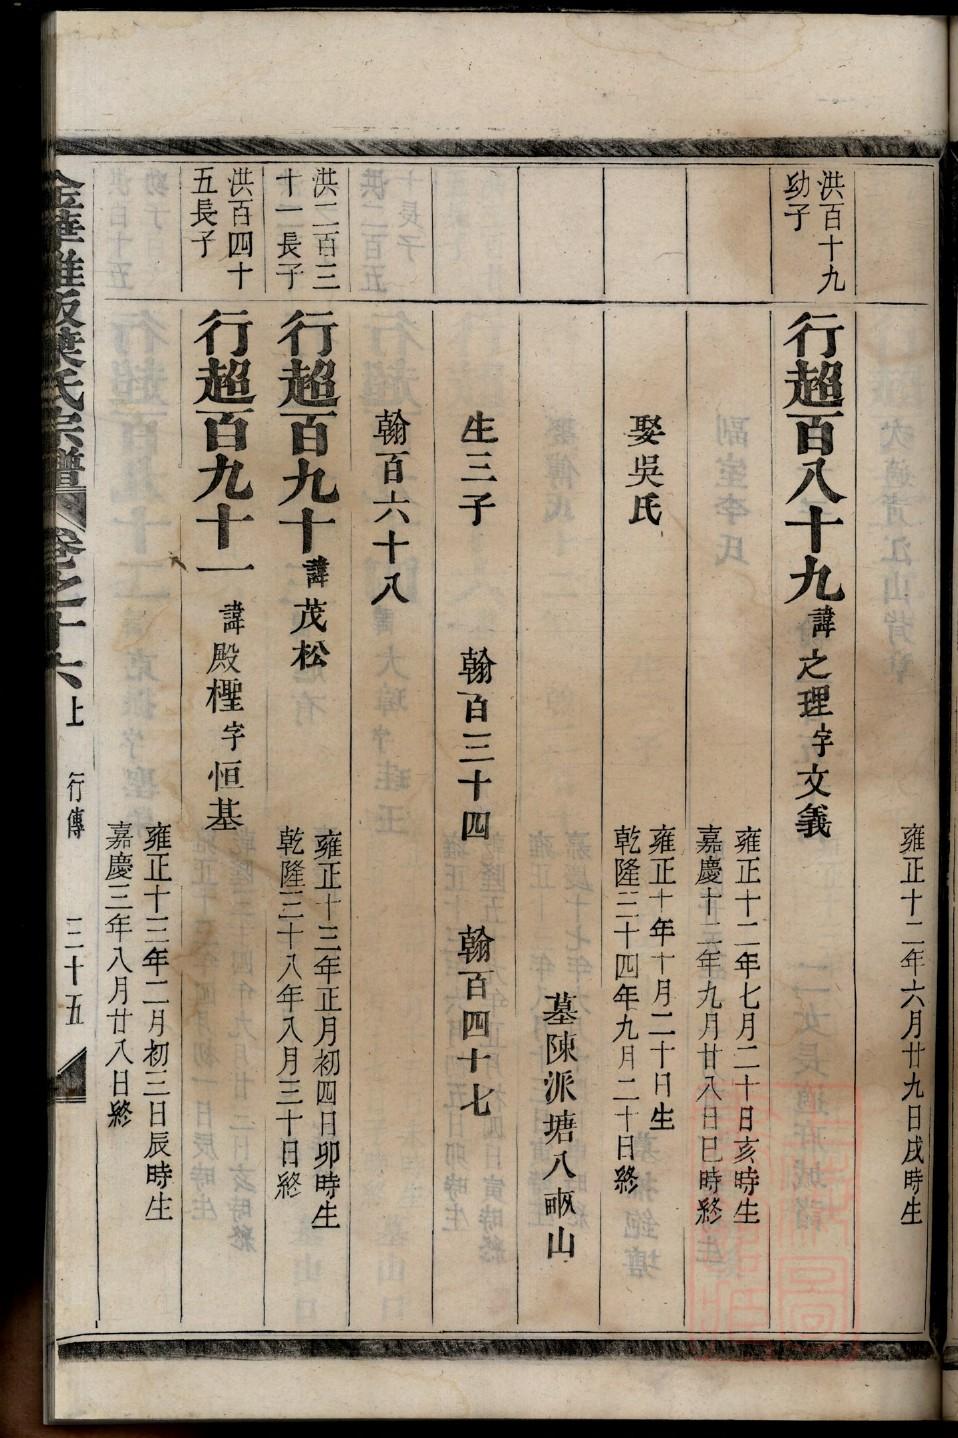 雍正十二年六月廿九日戌時生
洪百十九
幼子
行超百八十九諱之理字文義
雍正十二年七月二十日亥時生
嘉慶十二年九月廿八日巳時終
娶吳氏
雍正十年十月二十日生
乾隆三十四年九月二十日終
墓陳派塘八畝山
生三子 翰百三十四 翰百四十七
翰百六十八
洪二百三
十一長子
行超百九十諱茂松
雍正十三年正月初四日卯時生
乾隆三十八年八月三十日終
洪百四十
五長子
行超百九十一諱殿檉字恒基
雍正十三年二月初三日辰時生
嘉慶三年八月廿八日終
金華雅畈葉氏宗譜 卷之十六上 行傳 三十五